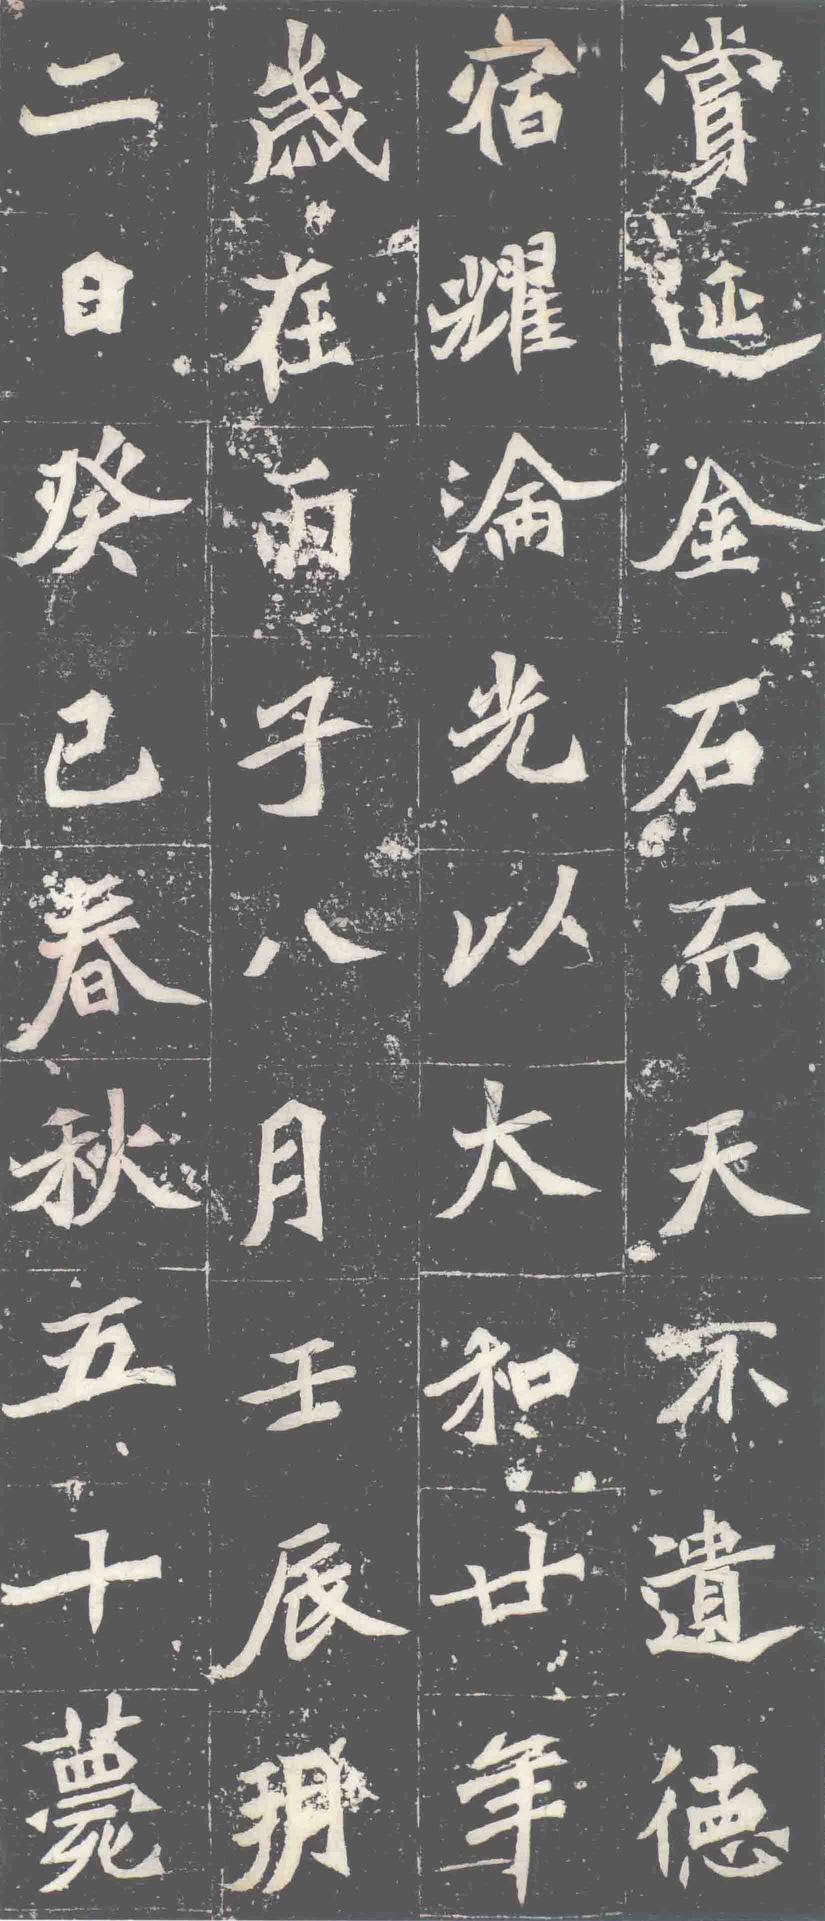 賞延金石而天不遺徳
宿耀淪光以太和廿年
歲在丙子八月壬辰朔
二日癸巳春秋五十薨